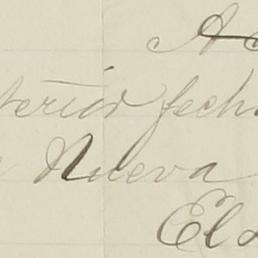 A
terior fech
Nueva
El